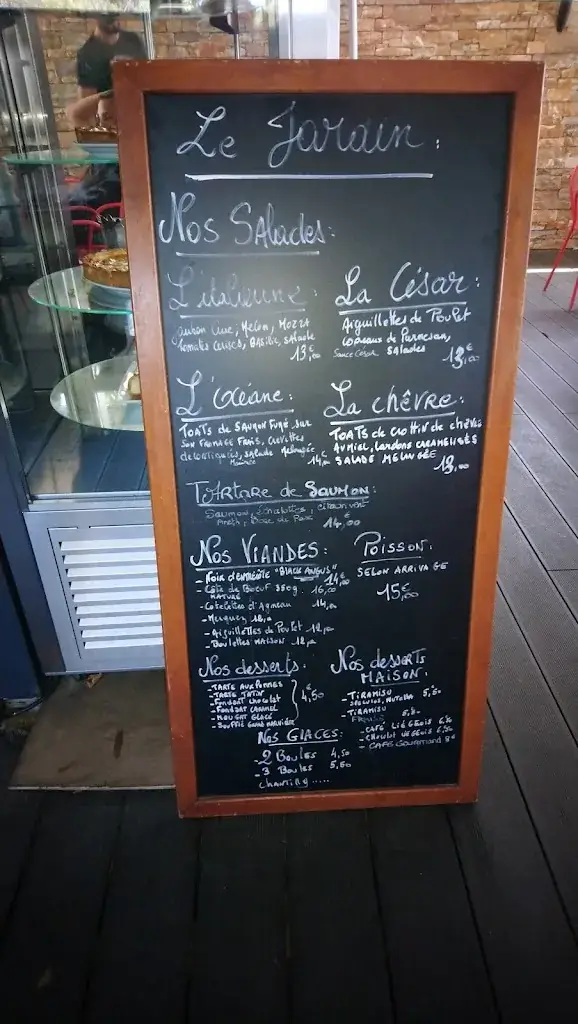 Le Jardin :
Nos Salades :
L'italienne :
Melon, Mozza
Tomates cerises, Basilic, salade
13,00
La César :
Aiguillettes de Poulet
copeaux de Parmesan,
Sauce César Salades
13€,00
L'Océane :
Toats de Saumon Fumé, sur
son fromage frais, crevettes
décortiquées, salade Melangée
14€,00
La chêvre :
Toats de crottin de chêvre
Au miel, lardons caramelisés
Salade Melangée
13,00
Tartare de Saumon :
Saumon, échalottes, citron vert
Aneth,
14€,00
Nos Viandes :
- Noix d'entrecôte "Black Angus" 14€,00
- Côte de Boeuf 350g 16,00
Maturé
- Cotelettes d'Agneau 14,00
- Merguez 12,00
- Aiguillettes de Poulet 12,00
- Boulettes Maison 12,00
Poisson :
Selon arrivage
15€,00
Nos desserts :
- Tarte aux Pommes
- Tarte Tatin
- Fondant chocolat
- Fondant caramel
- Nought Glacé
- Soufflé Grand Marnier
4€,50
Nos desserts
Maison :
- Tiramisu 5,50
Speculos, Nutella
- Tiramisu 5,50
Fraise
- Café Liégeois 6,50
- Chocolat Liégeois 6,50
- Café Gourmand 8€
Nos Glaces :
- 2 Boules 4,50
- 3 Boules 5,50
chantilly .....